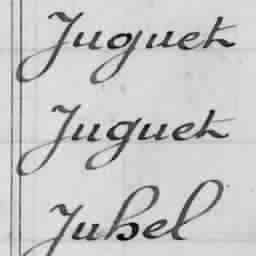 Juguet
Juguet
Juhel